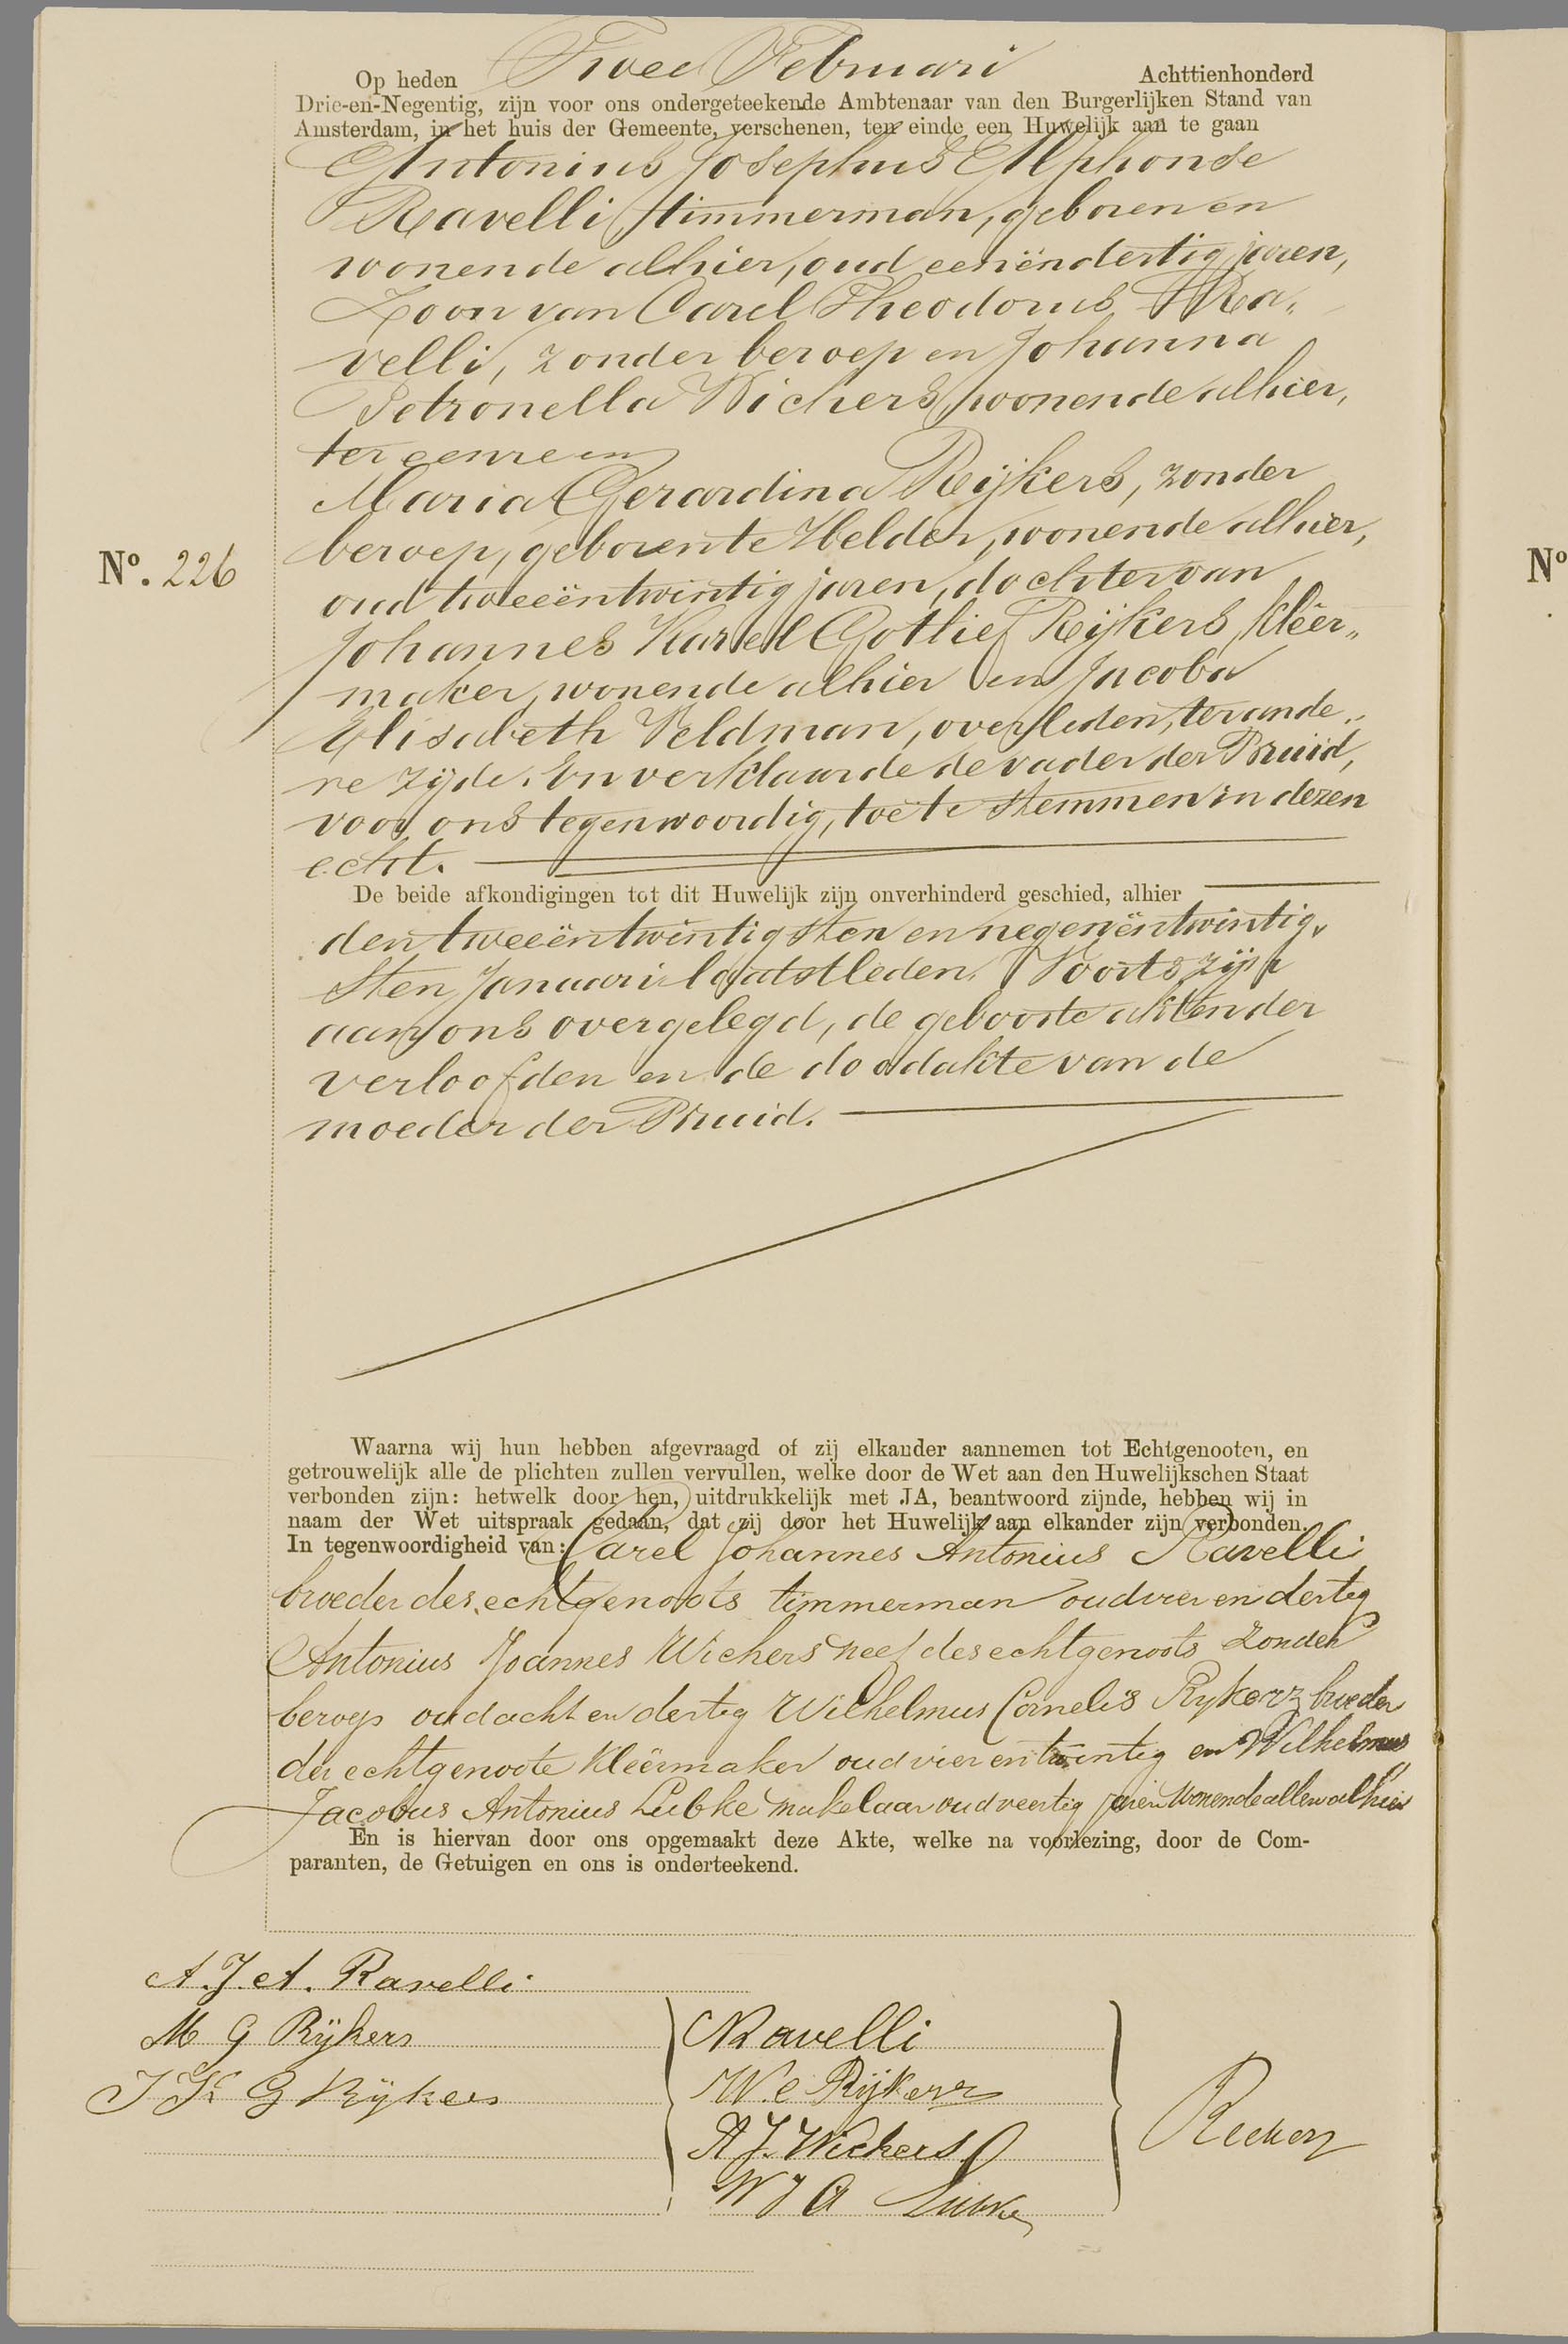 Op heden Twee Februari Achttienhonderd
Drie-en-Negentig, zijn voor ons ondergeteekende Ambtenaar van den Burgerlijken Stand van
Amsterdam, in het huis der Gemeente, verschenen, ten einde een Huwelijk aan te gaan
Antonius Josephus Alphonse
Ravelli, timmerman, geboren en
wonende alhier, oud eenëndertig jaren,
Zoon van Carel Theodorus Ra„
velli, zonder beroep en Johanna
Petronella Wichers, wonende alhier,
ter eenre en
Maria Gerardina Reijkers, zonder
beroep, geboren te Helder, wonende alhier,
No. 226
No
oud tweeëntwintig jaren, dochter van
Johannes Karel Gotlief Reijkers, kléer„
maker, wonende alhier en Jacoba
Elisabeth Veldman, overleden, ter ande„
re zijde. En verklaarde de vader der Bruid,
voor ons tegenwoordig, toe te stemmen in dezen
echt.
De beide afkondigingen tot dit Huwelijk zijn onverhinderd geschied, alhier
den tweeëntwintigsten en negenëntwintig„
sten Januari laatstleden. Voorts zijn
aan ons overgelegd, de geboorteakten der
verloofden en de doodakte van de
moeder der Bruid.
Waarna wij hun hebben afgevraagd of zij elkander aannemen tot Echtgenooten, en
getrouwelijk alle de plichten zullen vervullen, welke door de Wet aan den Huwelijkschen Staat
verbonden zijn: hetwelk door hen, uitdrukkelijk met JA, beantwoord zijnde, hebben wij in
naam der Wet uitspraak gedaan, dat zij door het Huwelijk aan elkander zijn verbonden.
In tegenwoordigheid van: Carel Johannes Antonius Ravelli
broeder des echtgenoots timmerman oud vier en dertig
Antonius Joannes Wichers neef des echtgenoots zonder
beroep oud acht en dertig Wilhelmus Cornelis Rykerz broeder
der echtgenoote Kléermaker oud vier en twintig en Wilhelmus
Jacobus Antonius Lubke makelaar oud veertig jaren wonende allen alhier
En is hiervan door ons opgemaakt deze Akte, welke na voorlezing, door de Com-
paranten, de Getuigen en ons is onderteekend.
A. J. A. Ravelli
M G Rijkers
J K G Rijkers
Ravelli
W. C Rijkerz
A J. Wichers
W J A Lubke